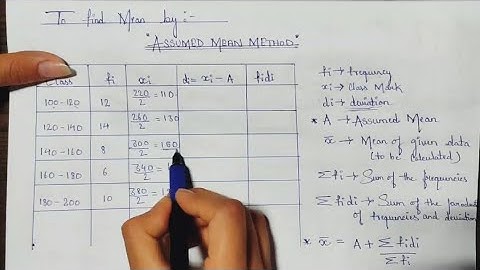 To find Mean by:-
"ASSUMED MEAN METHOD"
Class fi xi di = xi - A fidi
100-120 12 220/2 = 110
120-140 14 260/2 = 130
140-160 8 300/2 = 150
160-180 6 340/2 =
180-200 10 380/2 =
fi → frequency
xi → Class Mark
di → deviation
* A → Assumed Mean
x̄ → Mean of given data
(to be calculated)
Σfi → Sum of the frequencies
Σfidi → Sum of the product
of frequencies and deviation
* x̄ = A + Σfidi/Σfi